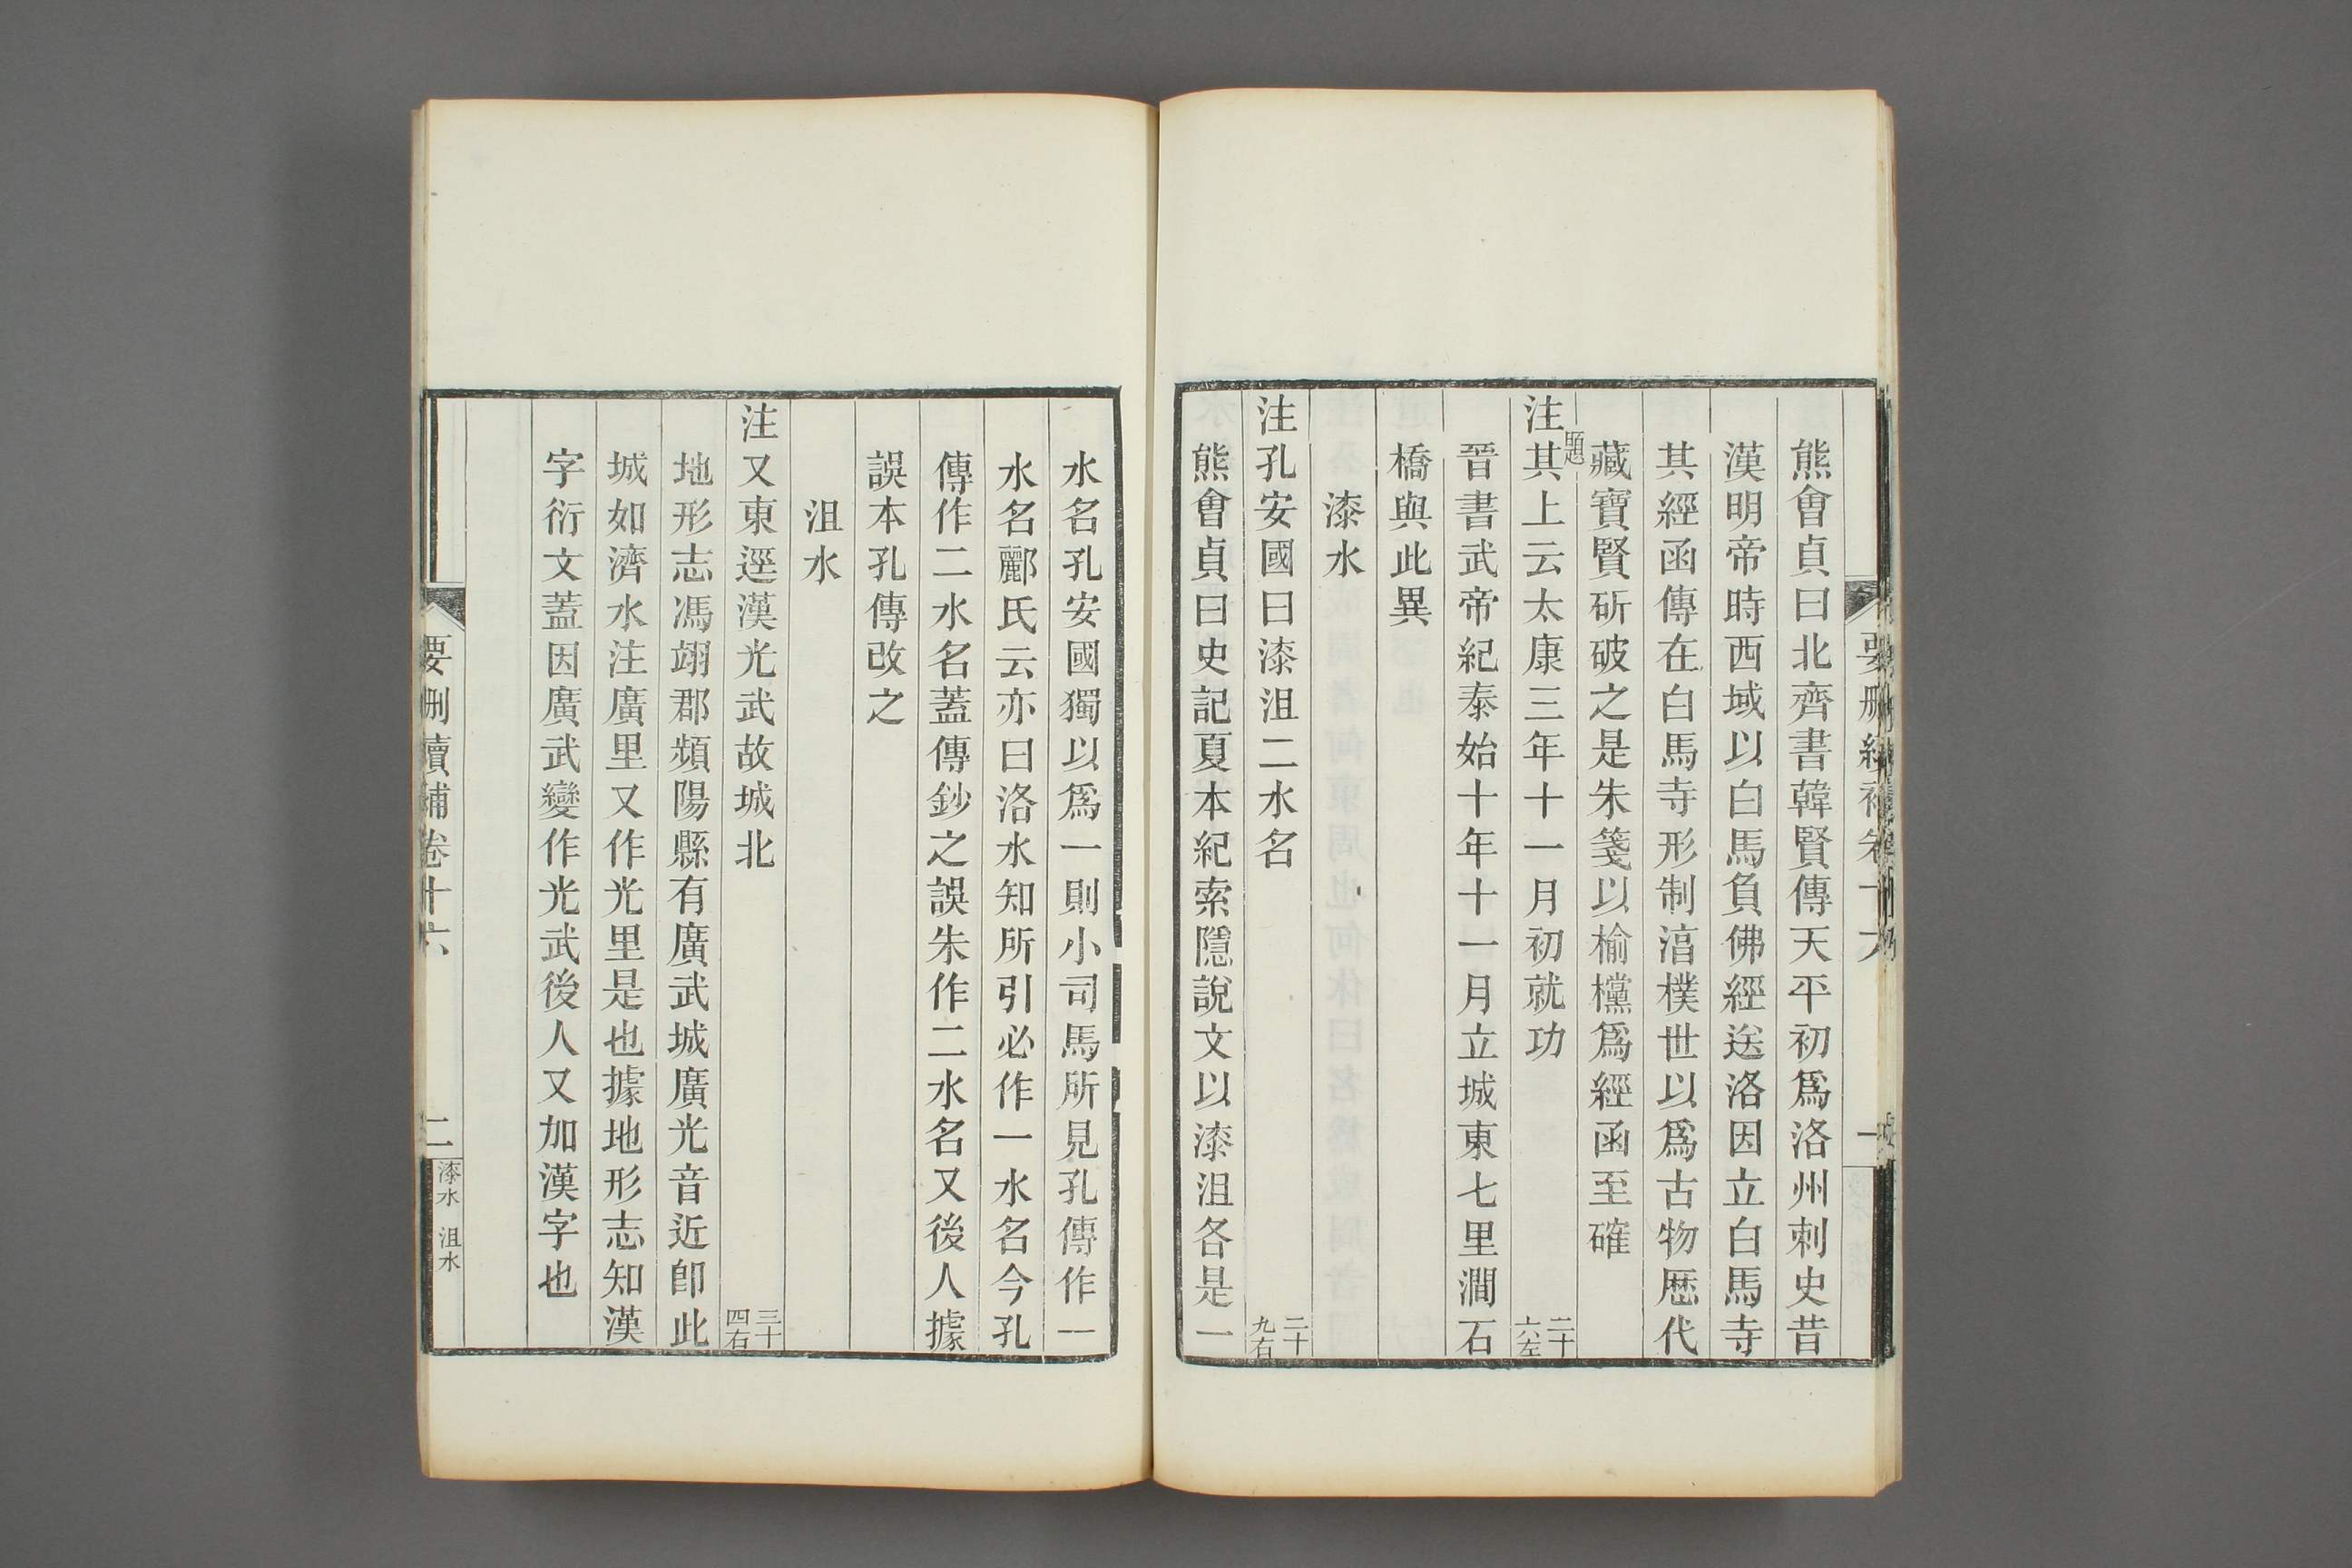 熊會貞曰北齊書韓賢傳天平初爲洛州刺史昔
漢明帝時西域以白馬負佛經送洛因立白馬寺
其經函傳在白馬寺形制渻樸世以爲古物歷代
藏寶賢斫破之是朱箋以榆欓爲經函至確
題
注其上云太康三年十一月初就功 二十六左
晉書武帝紀泰始十年十一月立城東七里澗石
橋與此異
漆水
注孔安國曰漆沮二水名 二十九右
熊會貞曰史記夏本紀索隱說文以漆沮各是一
水名孔安國獨以爲一則小司馬所見孔傳作一
水名酈氏云亦曰洛水知所引必作一水名今孔
傳作二水名蓋傳鈔之誤朱作二水名又後人據
誤本孔傳改之
沮水
注又東逕漢光武故城北 三十四右
地形志馮翊郡頻陽縣有廣武城廣光音近卽此
城如濟水注廣里又作光里是也據地形志知漢
字衍文蓋因廣武變作光武後人又加漢字也
要刪續補卷十六 二 漆水 沮水